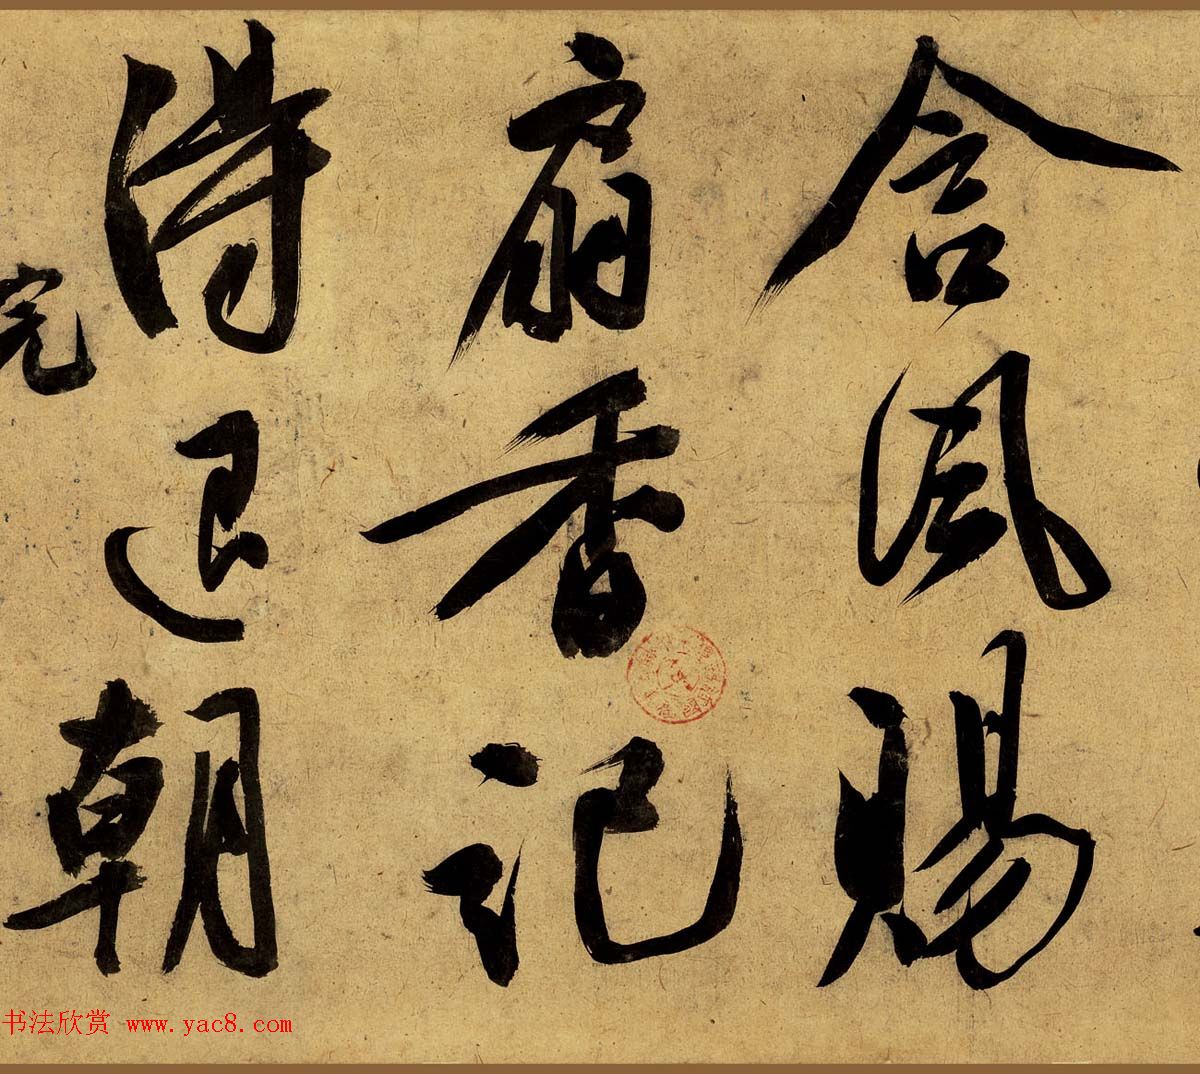 含風賜
扇香記
得退朝
书法欣赏 www.yac8.com